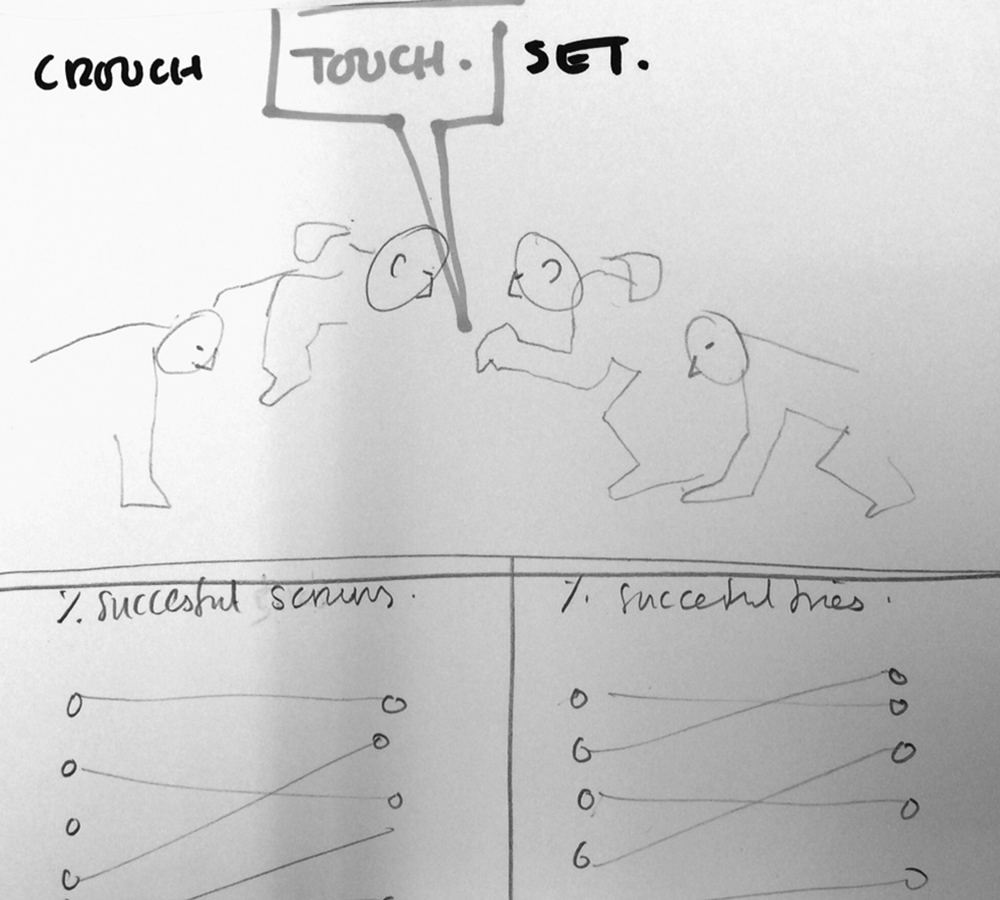 CROUCH TOUCH. SET.
% succesful scrums.
% succesful tries.